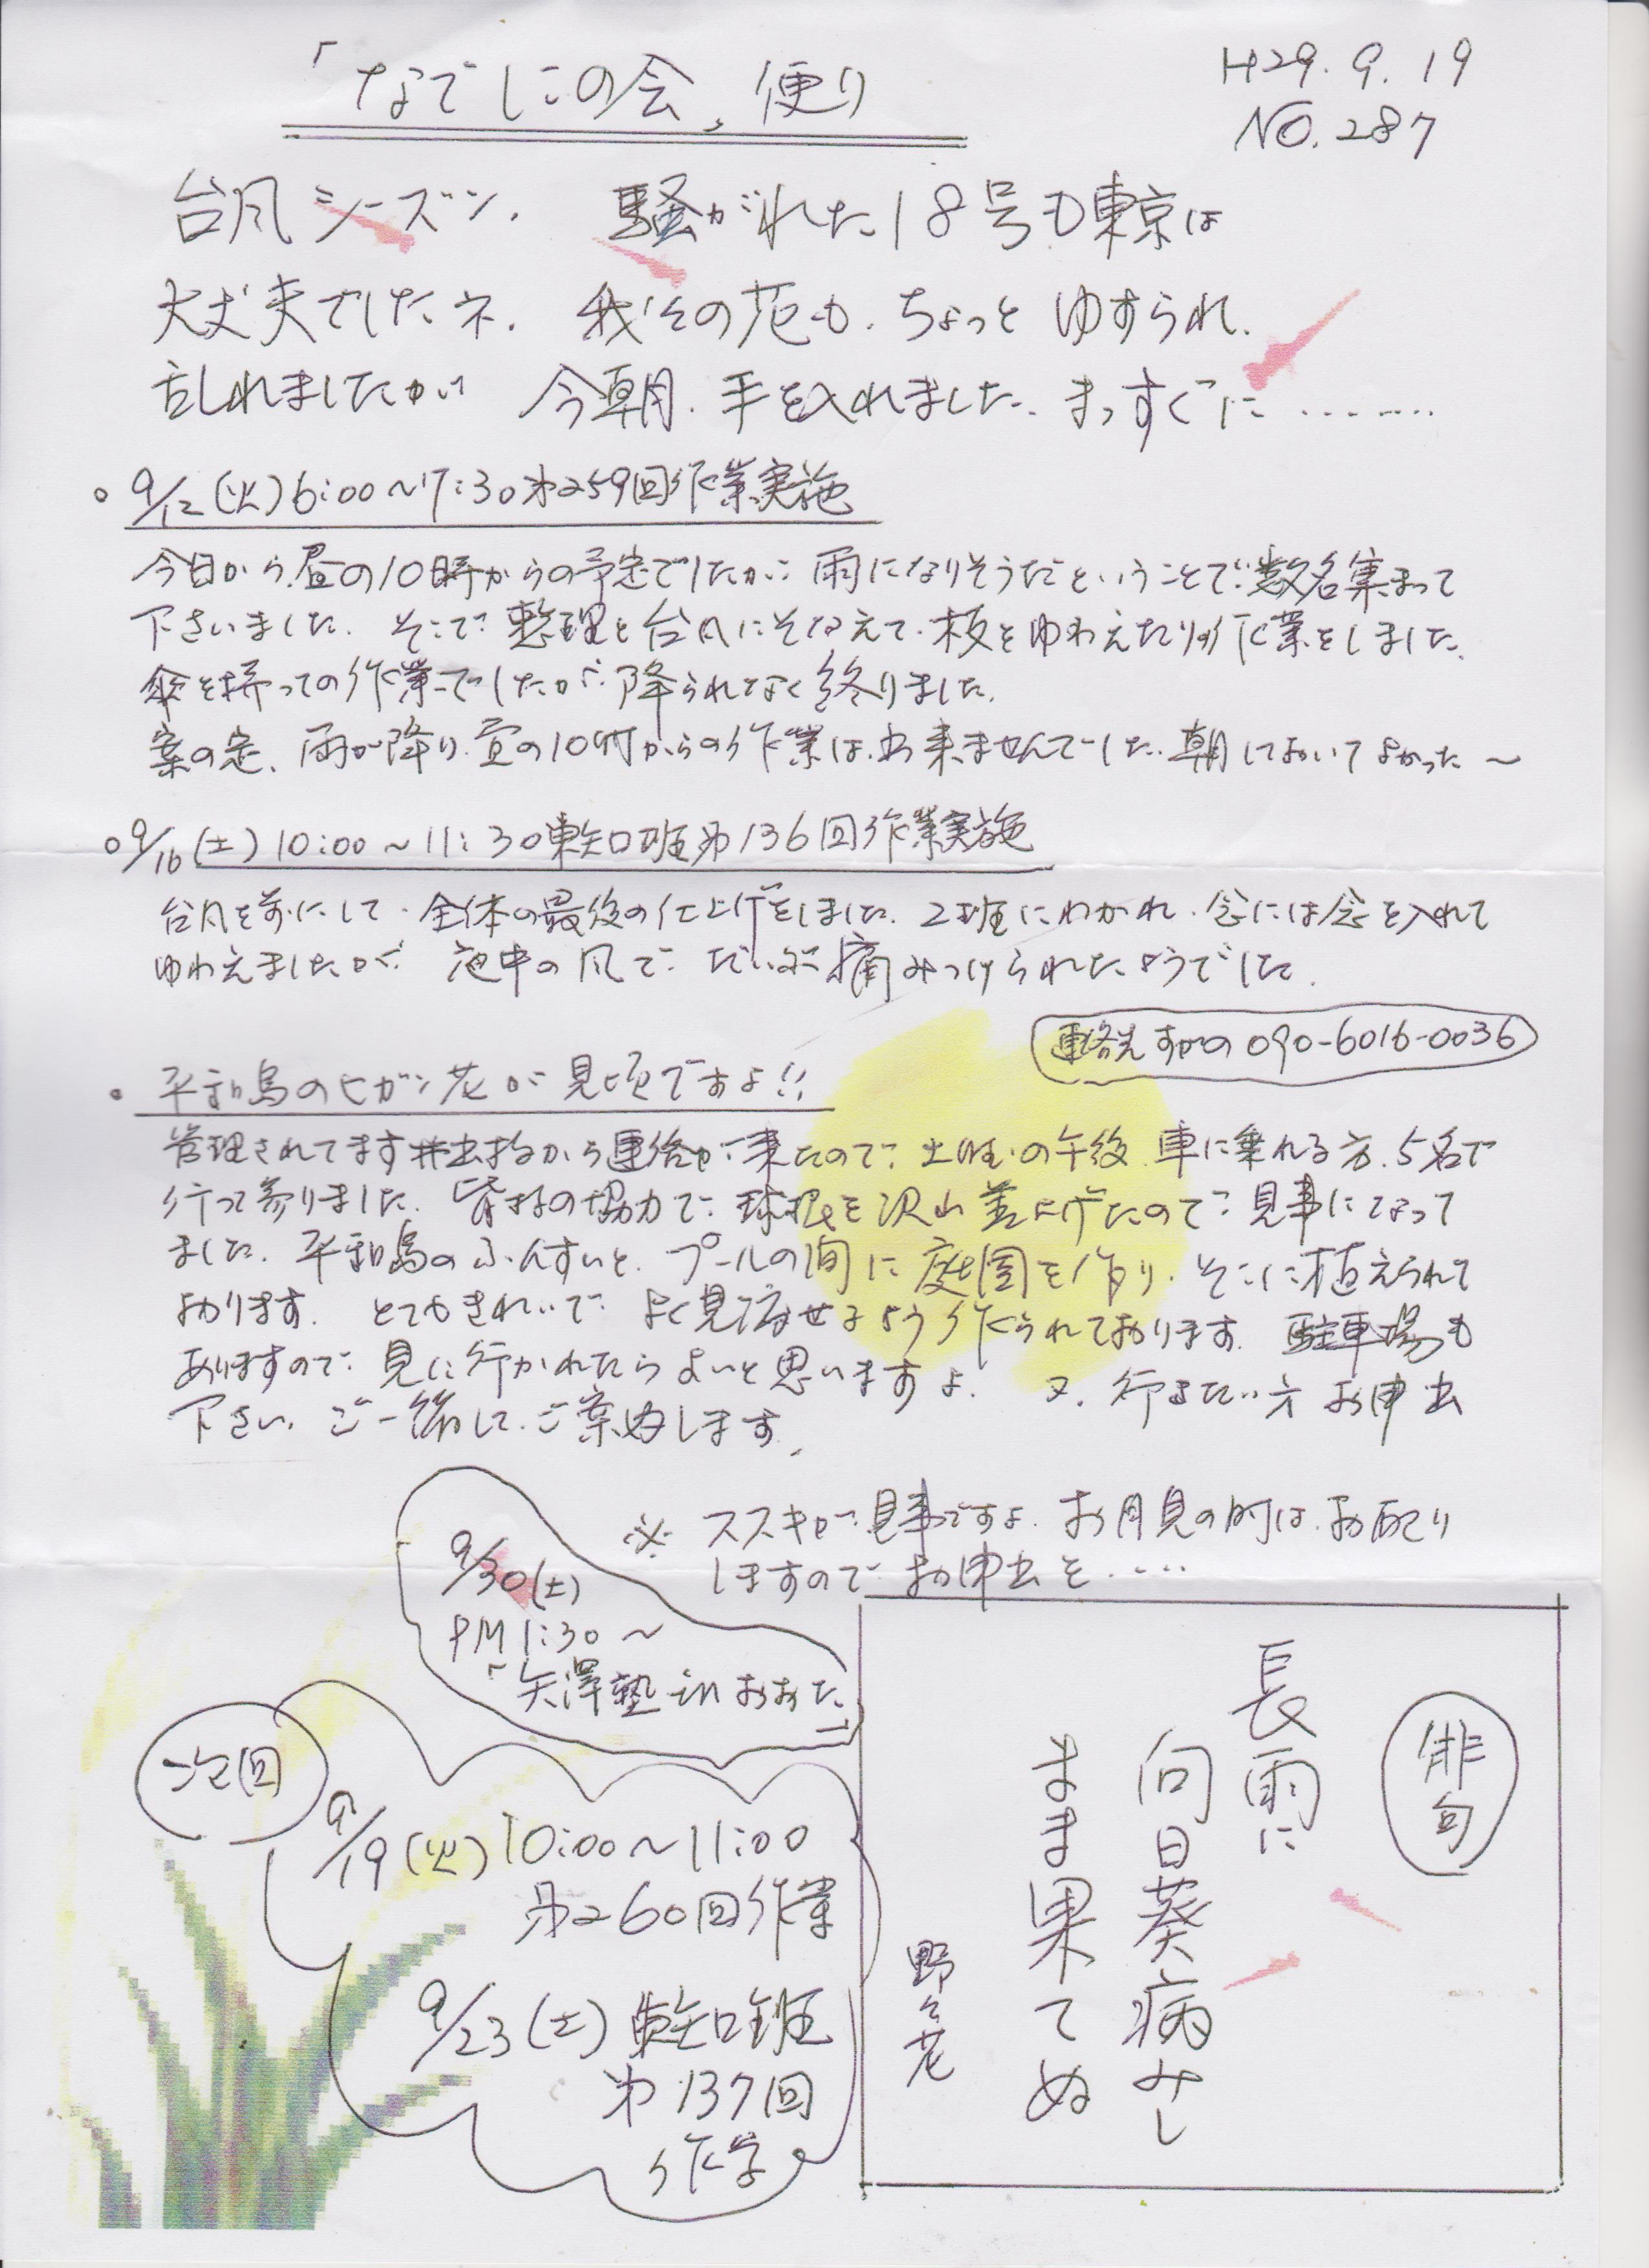 「なでしこの会」便り
H29.9.19
NO.287
台風シーズン、騒がれた18号も東京は
大丈夫でしたネ、我々の花も、ちょっとゆすられ、
乱れましたが 今朝、手を入れました、まっすぐに.......
○9/12(火)6:00〜7:30第259回作業実施
今日から、昼の10時からの予定でしたが、雨になりそうだということで、数名集まって
下さいました。そこで、整理と台風にそなえて、枝をゆわえたりの作業をしました。
傘を持っての作業でしたが、降られなく終りました。
案の定、雨が降り、昼の10時からの作業は、出来ませんでした、朝しておいてよかった〜
○9/16(土)10:00〜11:30東矢口班第136回作業実施
台風を前にして、全体の最後の仕上げをしました。2班にわかれ、念には念を入れて
ゆわえましたが、夜中の風で、だいぶ痛みつけられたようでした。
連絡先 すがの 090-6016-0036
・平和島のヒガン花が見頃ですよ!!
管理されてます井出様から連絡が来たので、土曜の午後、車に乗れる方、5名で
行って参りました。皆様の協力で、球根を沢山差上げたので、見事になって
ました。平和島のふんすいと、プールの間に庭園を作り、そこに植えられて
おります。とてもきれいで、よく見渡せるよう作られております。駐車場も
ありますので、見に行かれたらよいと思いますよ。又、行きたい方お申出
下さい。ご一緒して、ご案内します。
※ススキが、見事ですよ。お月見の時は、お配り
しますので、お申出を.....
9/30(土)
PM1:30〜
「矢澤塾inおおた」
次回
9/19(火)10:00〜11:00
第260回作業
9/23(土)東矢口班
第137回
作業
俳句
長雨に
向日葵病みし
まま果てぬ
野々花